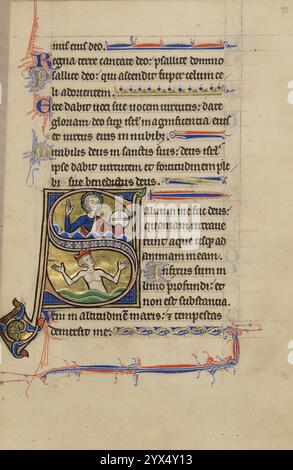 nus eius deo.
Regna terre cantate deo: psallite domino
psallite deo: qui ascendit super celum ce
li ad orientem.
Ecce dabit uoci sue uocem uirtutis: date
gloriam deo sup isrl magnificentia eius
et uirtus eius in nubibz.
Mirabilis deus in sanctis suis: deus isrl
ipse dabit uirtutem et fortitudinem ple
bi sue benedictus deus.
Saluum me fac deus:
quoniam intraue
runt aque usqz ad
animam meam.
Infixus sum in
limo profundi: et
non est substantia.
Veni in altitudinem maris: et tempestas
demersit me.
alamy
www.alamy.com
2XX4Y13